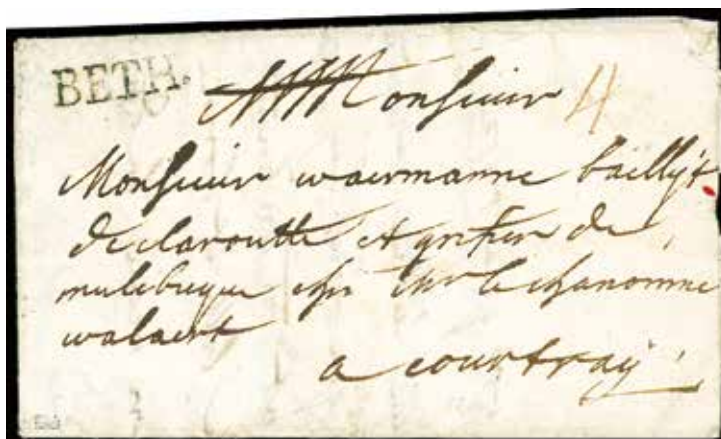 BETH.
Monsieur 4
Monsieur waermanne bailly
de claroutte et grefier de
mulebeque chez le chanonne
walaert
a courtraij